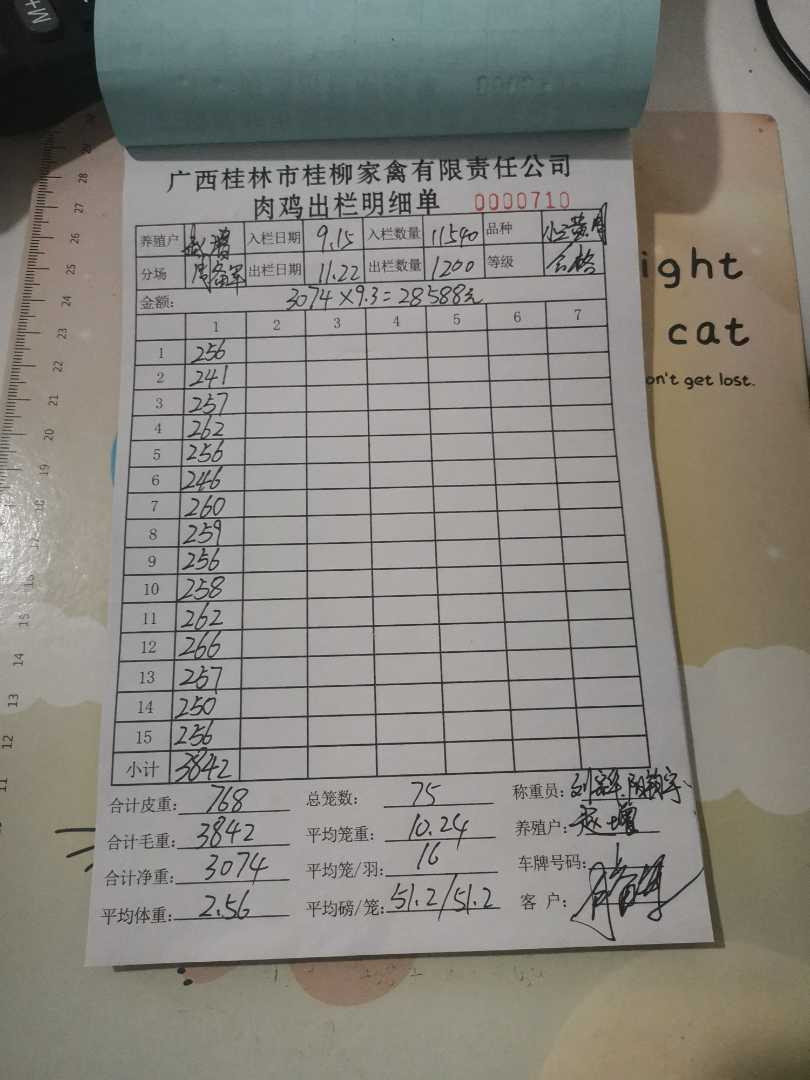 广西桂林市桂柳家禽有限责任公司
肉鸡出栏明细单 0000710
养殖户 赵增 入栏日期 9.15 入栏数量 11540 品种
分场 出栏日期 11.22 出栏数量 1200 等级 合格
金额: 3074×9.3=28588元
1 2 3 4 5 6 7
1 256
2 241
3 257
4 262
5 256
6 246
7 260
8 259
9 256
10 258
11 262
12 266
13 257
14 250
15 256
小计 3842
合计皮重: 768 总笼数: 75 称重员:
合计毛重: 3842 平均笼重: 10.24 养殖户: 赵增
合计净重: 3074 平均笼/羽: 16 车牌号码:
平均体重: 2.56 平均磅/笼: 51.2/51.2 客 户:
ight
cat
on't get lost.
29
28
27
26
25
24
23
22
21
20
19
18
17
16
15
14
13
12
11